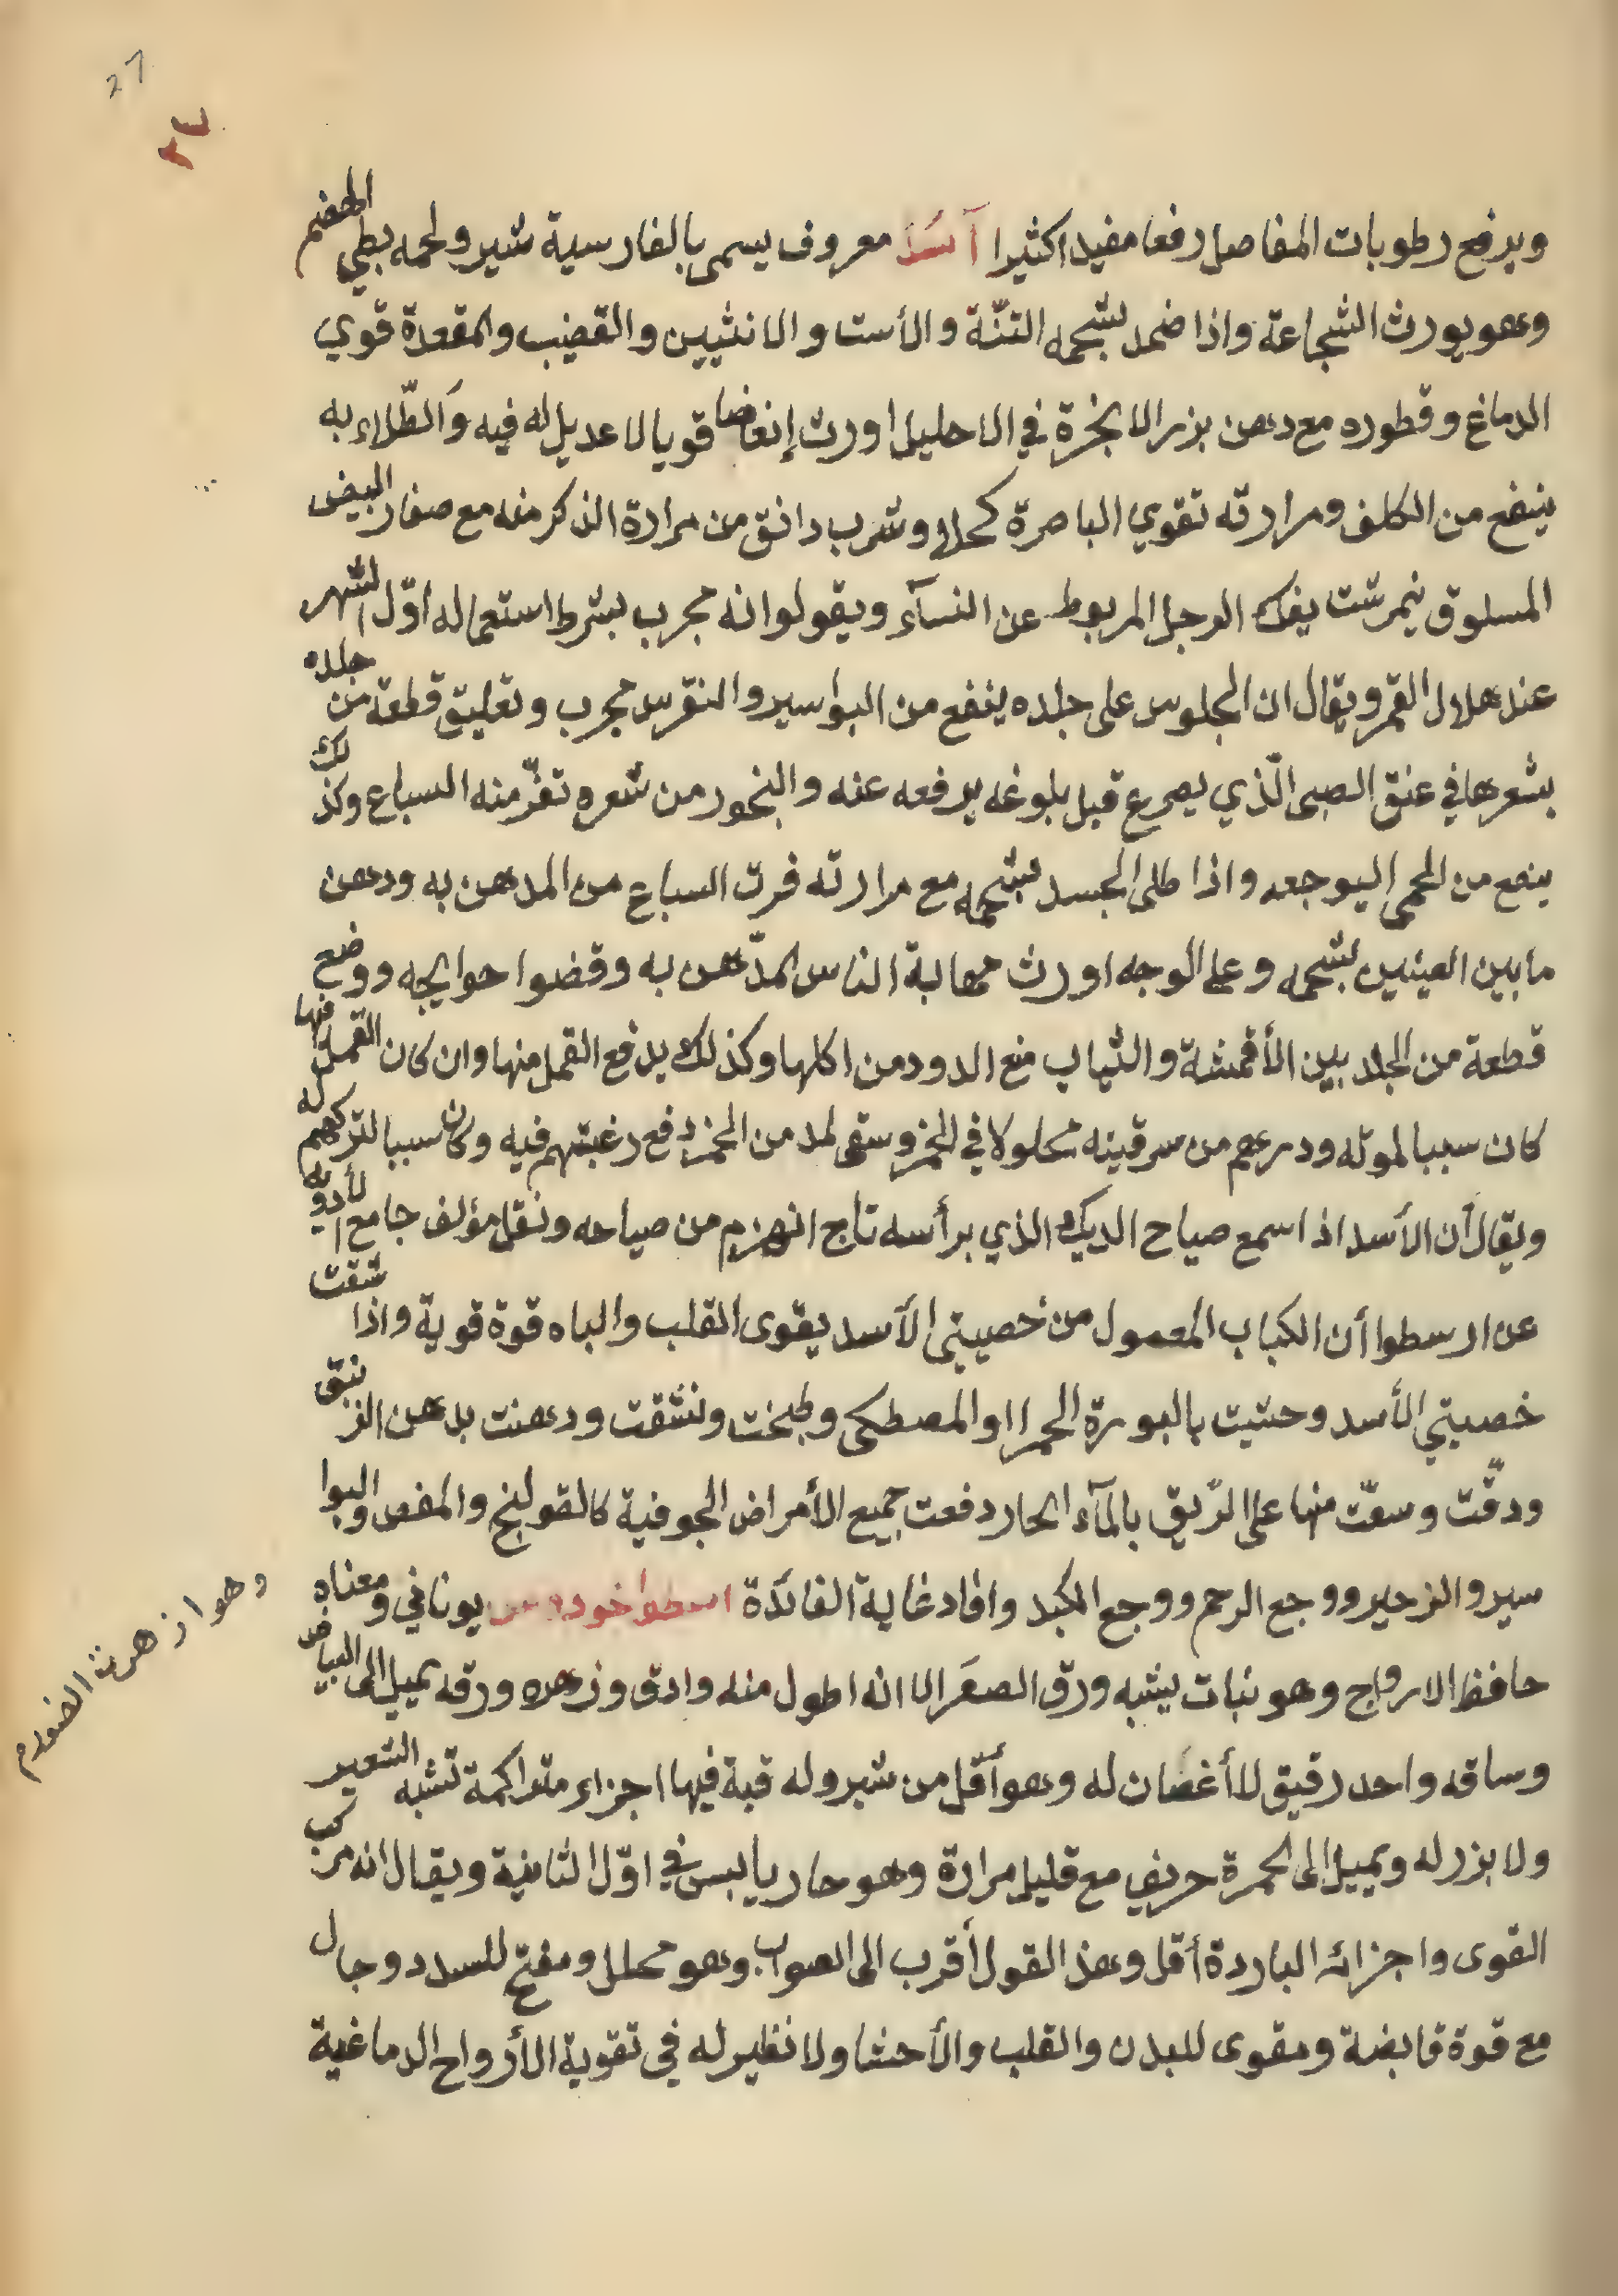 27
٢٤
ويرفع رطوبات المفاصل رفعا مفيدا كثيرا آسَد معروف يسمى بالفارسية شير ولحمه بطي الهضم
وهو يورث الشجاعة واذا ضمد بشحمه التنّة والأست والانثيين والقضيب والمقعدة قوي
الدماغ وقطوره مع دهن بزر الابخرة في الاحليل اورث إنعاضا قويا لا عديل له فيه وَالطّلاء به
ينفع من الكلف ومرارته تقوي الباصرة كحلا وشرب دانق من مرارة الذكر منه مع صفار البيض
المسلوق نيمرشت يفك الرجل المربوط عن النسآء ويقولوا نه مجرب بشرط استعماله اوّل الشهر
عند هلال القمر ويقال ان الجلوس على جلده ينفع من البواسير والنقرس مجرب وتعليق قطعة من جلده
بشعرها في عنق الصبى الّذي يصرع قبل بلوغه يرفعه عنه والبخور من شعره تفرّ منه السباع وكذلك
ينفع من الحمى اليوجعه واذا طلى الجسد بشحمه مع مرارته فرت السباع من المدهن به ودهن
ما بين العينين بشحمه وعلى الوجه اورث مهابة الناس المدّهن به وقضوا حوايجه ووضع
قطعة من الجلد بين الأقمشة والثياب منع الدود من اكلها وكذلك يدفع القمل منها وان كان القمل فيها
كان سببا لموته ودرهم من سرقينه محلولا في الخمر وسقى لمد من الخمر دفع رغبتهم فيه وكان سببا لتركهم له
ويقال أن الأسد اذا سمع صياح الديك الذي برأسه تاج انهزم من صياحه ونقل مؤلف جامع الأدوية
عن ارسطوا أن الكباب المعمول من خصيتي الآسد يقوى القلب والباه قوة قوية واذا شقت
خصيتي الأسد وحشيت بالبورة الحمرا والمصطكى وطبخت ونشقت ودهنت بدهن الزنبق
ودقّت وسفّت منها على الرّيق بالمآء الحار دفعت جميع الأمراض الجوفية كالقولنج والمغص والبوا
سير والزحير ووجع الرحم ووجع الكبد وافاد غاية الفائدة اسطواخودوس يوناني ومعناه
حافظ الارواج وهو نبات يشبه ورق الصعَر الا انه اطول منه وادق وزهره ورقه يميل الى البياض
وساقه واحد رقيق لا أغصَان له وهو أقل من شبر وله قبة فيها اجزاء متراكمة تشبه الشعير
ولا بزر له ويميل الى الحمرة حريف مع قليل مرارة وهو حار يابس في اوّل الثانية ويقال انه مركب
القوى واجزائه الباردة أقل وهذ القول أقرب الى الصواب وهو محلل ومفتح للسدد وجال
مع قوة قابضة ومقوى للبدن والقلب والأحشا ولا نظير له في تقوية الأرواح الدماغية
وهو از هرة الضورم